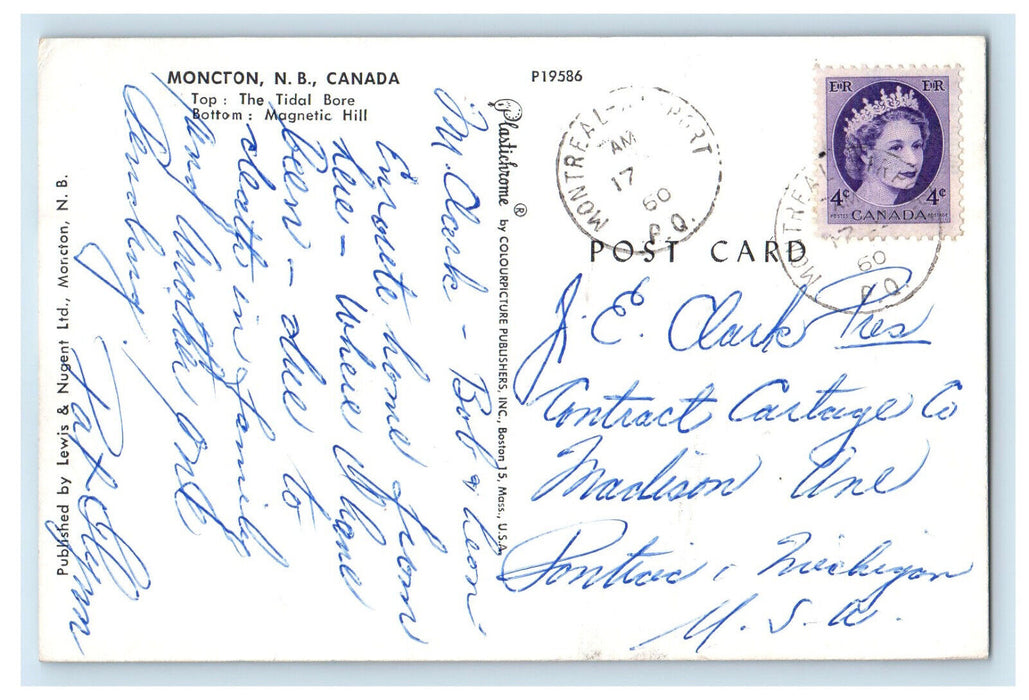 MONCTON, N. B., CANADA
Top : The Tidal Bore
Bottom : Magnetic Hill
P19586
Published by Lewis & Nugent Ltd., Moncton, N. B.
Plastichrome ® by COLOURPICTURE PUBLISHERS, INC., Boston 15, Mass., U.S.A.
M. Clark - Bob & Leon.
Enroute home from
here - where I have
been - due to
death in family
Any
Pat
MONTREAL-AIRPORT
AM
17
60
P.Q.
MONTREAL
17
60
P.Q.
EIIR EIIR
4¢ 4¢
POSTES CANADA POSTAGE
POST CARD
J. E. Clark Pres
Contract Cartage Co
Madison Ave
Pontiac, Michigan
U.S.A.